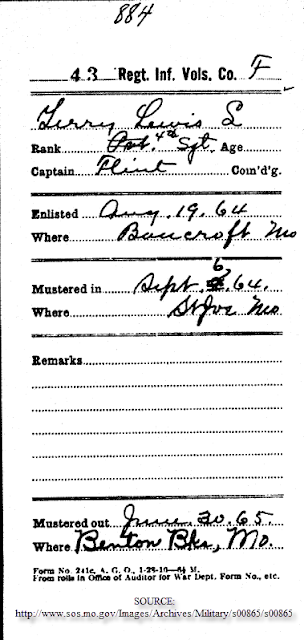 884
43 Regt. Inf. Vols. Co. F
Terry Lewis L
Rank Pvt. 4th Sgt. Age
Captain Flint Com'd'g.
Enlisted Aug. 19. 64
Where Bancroft Mo
Mustered in Sept. 6. 64.
Where St Joe Mo
Remarks
Mustered out June 30. 65.
Where Benton Bks, Mo.
Form No. 241c, A. G. O., 1-28-10—64 M.
From rolls in Office of Auditor for War Dept. Form No., etc.
SOURCE:
http://www.sos.mo.gov/Images/Archives/Military/s00865/s00865